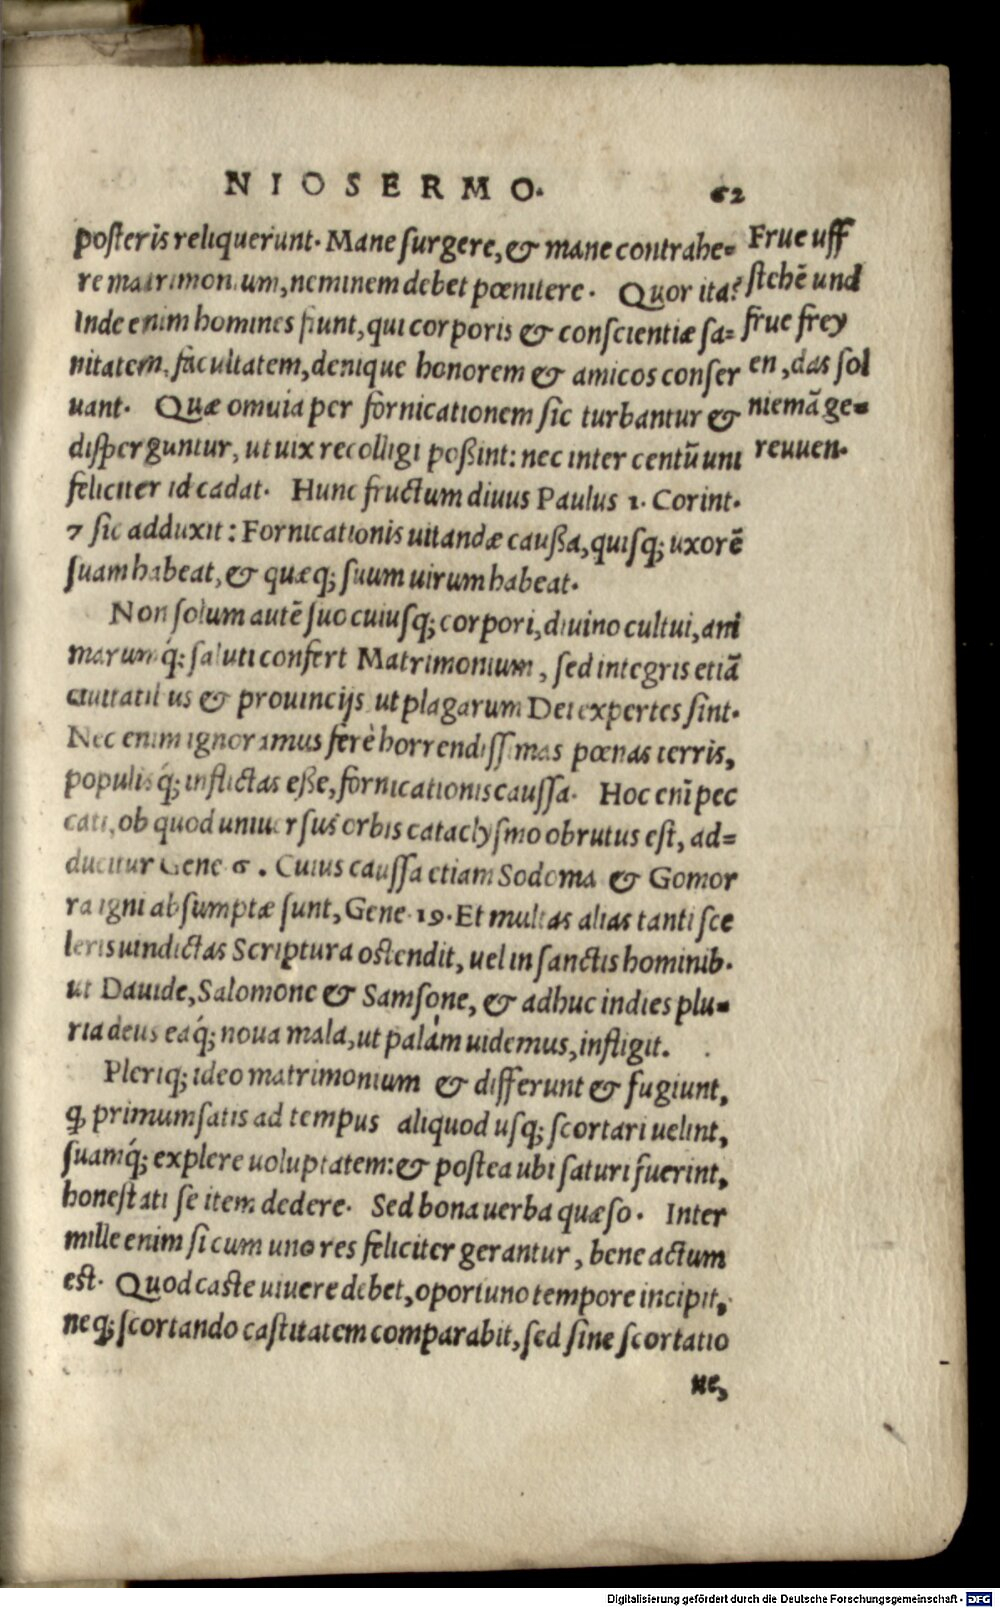 NIOSERMO. 62
posteris reliquerunt. Mane surgere, & mane contrahe=
re matrimonium, neminem debet pœnitere. Quor ita?
Inde enim homines fiunt, qui corporis & conscientiæ sa=
nitatem, facultatem, denique honorem & amicos conser
uant. Quæ omuia per fornicationem sic turbantur &
disperguntur, ut uix recolligi poßint: nec inter centũ uni
feliciter id cadat. Hunc fructum diuus Paulus 1. Corint.
7 sic adduxit: Fornicationis uitandæ caußa, quisq; uxorẽ
suam habeat, & quæq; suum uirum habeat.
Non solum autẽ suo cuiusq; corpori, diuino cultui, ani
marumq́; saluti confert Matrimonium, sed integris etiã
ciuitatibus & prouincijs ut plagarum Dei expertes sint.
Nec enim ignoramus ferè horrendissimas pœnas terris,
populisq́; inflictas eße, fornicationis caussa. Hoc enĩ pec
cati, ob quod uniuersus orbis cataclysmo obrutus est, ad=
ducitur Gene. 6. Cuius caussa etiam Sodoma & Gomor
ra igni absumptæ sunt, Gene. 19. Et multas alias tanti sce
leris uindictas Scriptura ostendit, uel in sanctis hominib.
ut Dauide, Salomone & Samsone, & adhuc indies plu=
ria deus eaq́; noua mala, ut palàm uidemus, infligit.
Pleriq; ideo matrimonium & differunt & fugiunt,
ꝙ primum satis ad tempus aliquod usq; scortari uelint,
suamq́; explere uoluptatem: & postea ubi saturi fuerint,
honestati se item dedere. Sed bona uerba quæso. Inter
mille enim si cum uno res feliciter gerantur, bene actum
est. Quod caste uiuere debet, oportuno tempore incipit,
neq; scortando castitatem comparabit, sed sine scortatio
ne,
Frue uff
stehẽ und
frue frey
en, das sol
niemã ge=
reuuen.
Digitalisierung gefördert durch die Deutsche Forschungsgemeinschaft - DFG